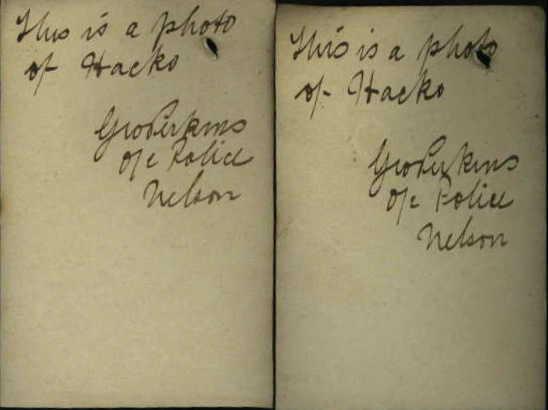 This is a photo
of Hacko
Geo Perkins
O/c Police
Nelson
This is a photo
of Hacko
Geo Perkins
O/c Police
Nelson